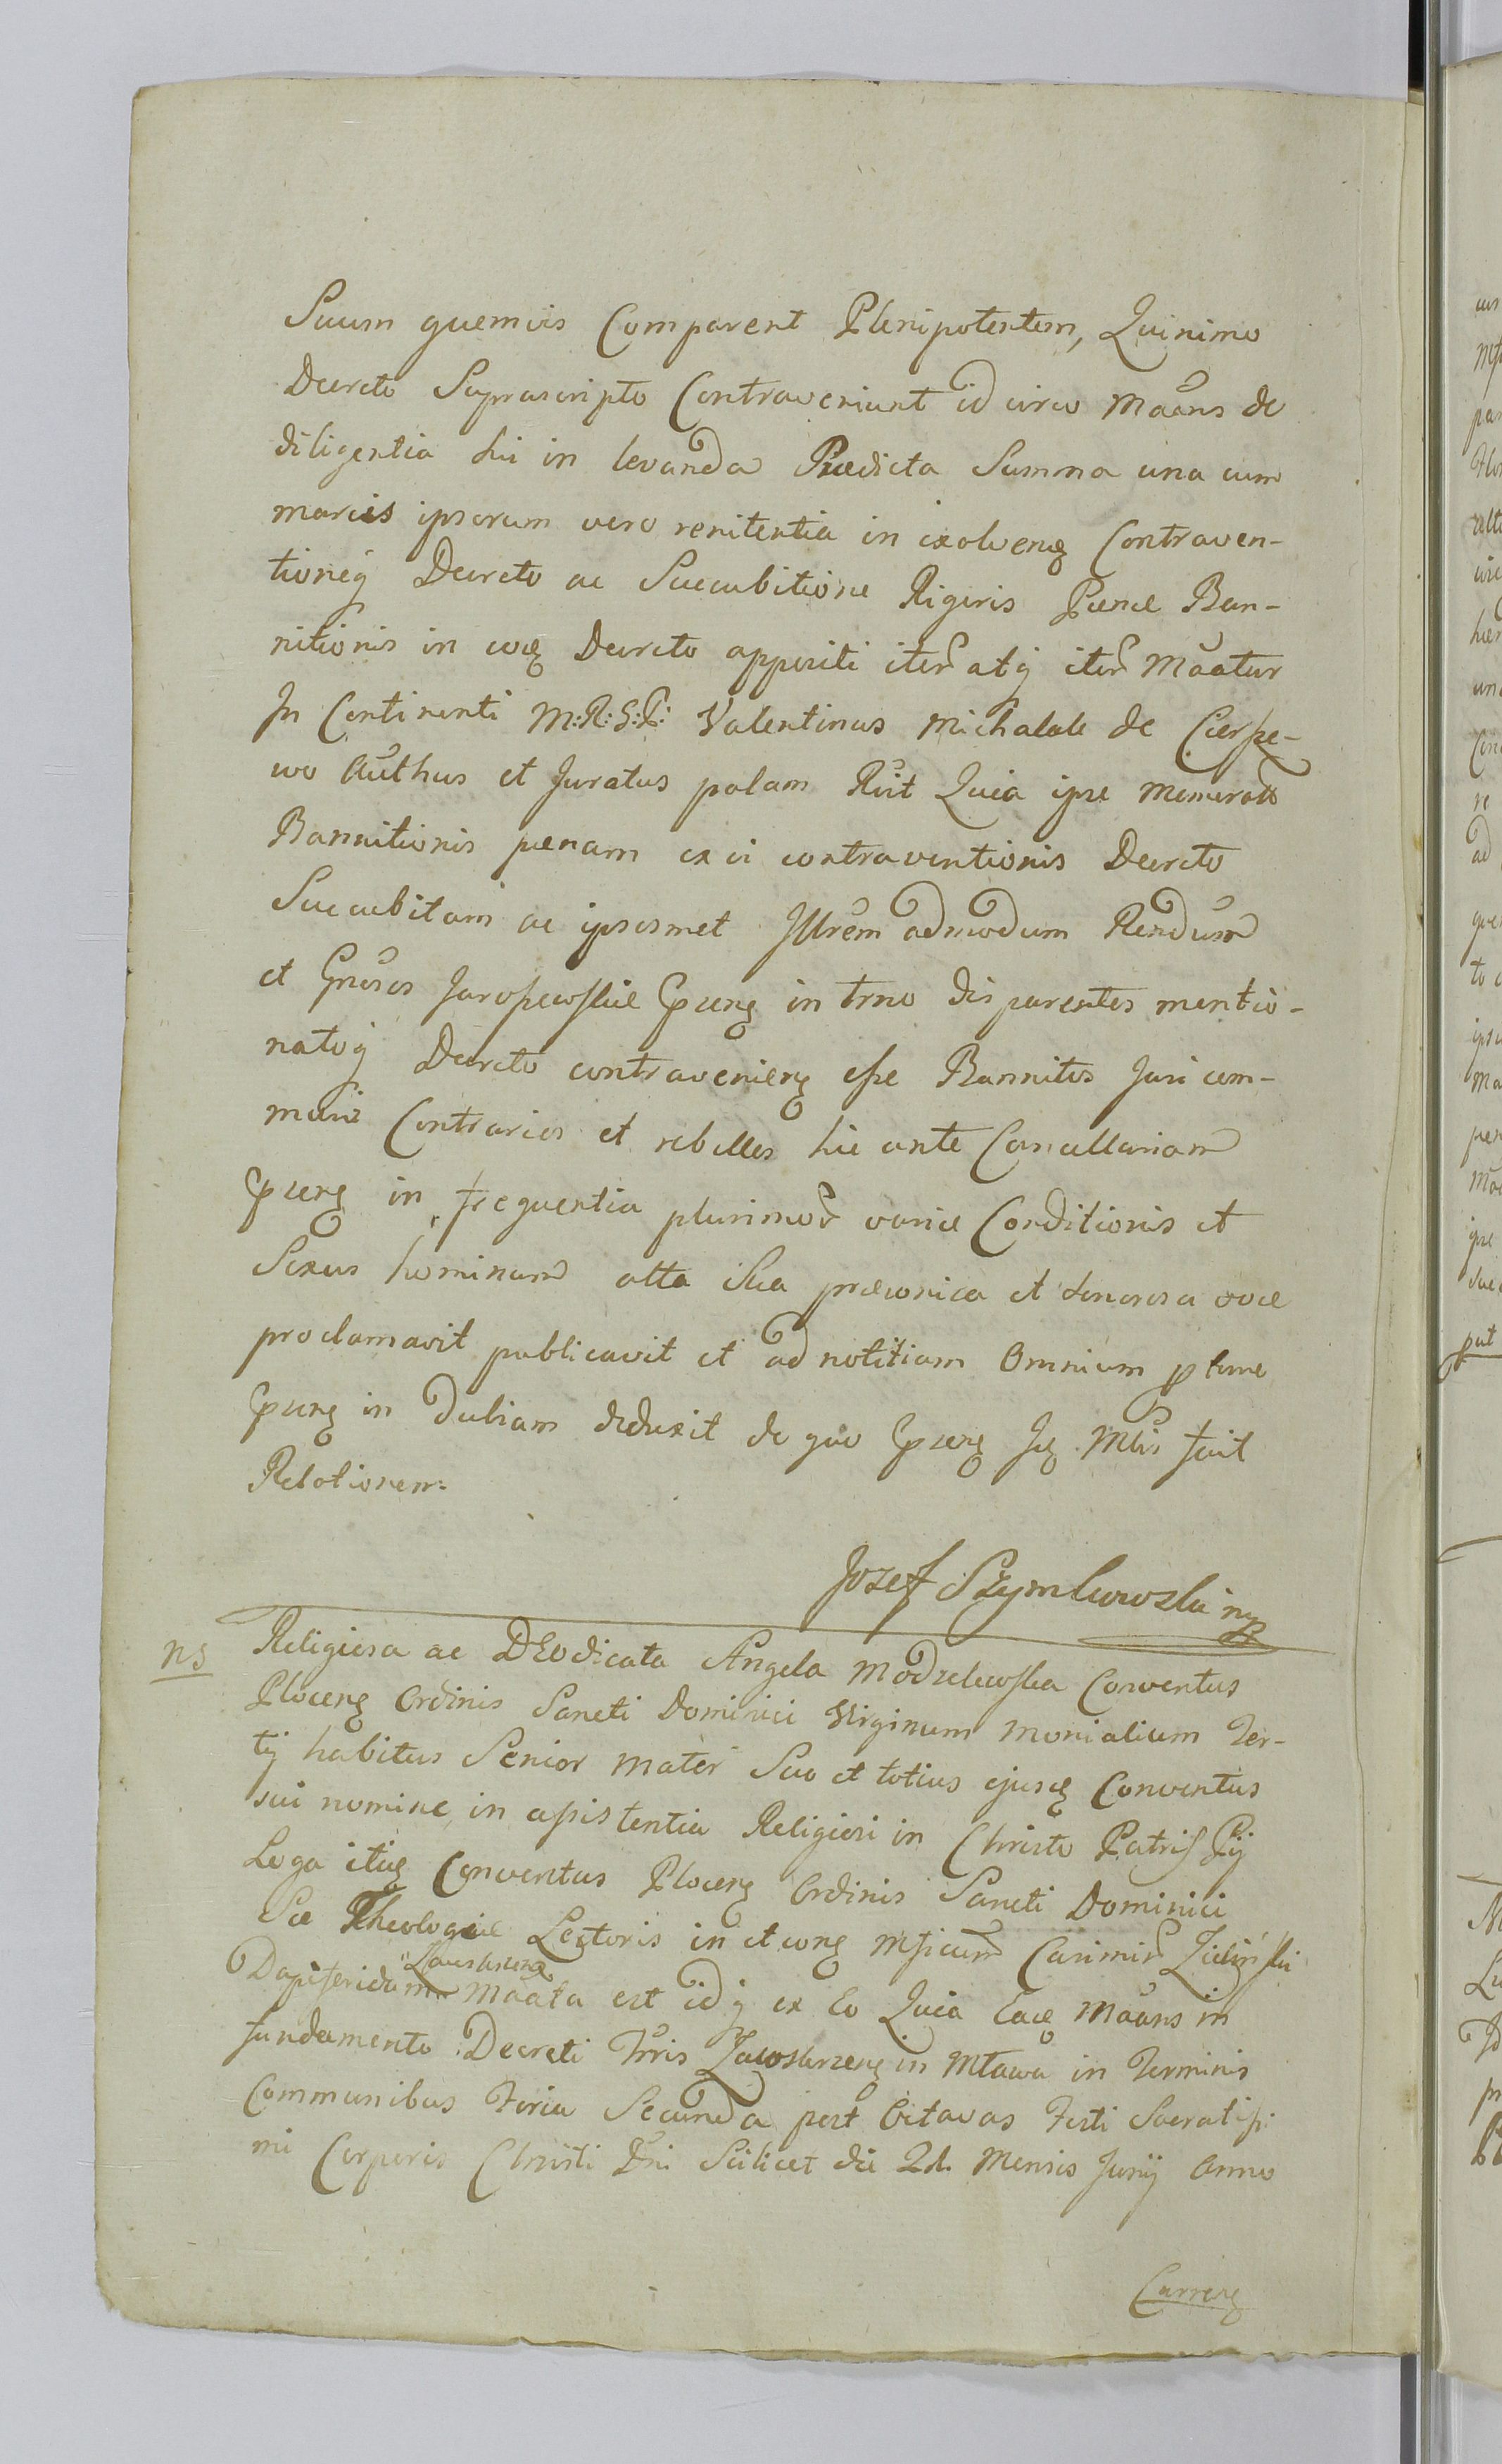 Suum quemvis Comparent Plenipotentem, Quinimo
Decreto Suprascripto Contraveniunt id circo Maans de
diligentia sui in levanda Prædicta Summa una cum
marcis ipsorum vero renitentia in exolvenq Contraven-
tioneq Decreto ac Succubitione Rigoris Pœnæ Ban-
nitionis in eoq Decreto appositi iter atq iter Maatur
In Continenti M:R:G:P: Valentinus Michalak de Cierpie-
wo Authus et Juratus palam Rcit Quia ipse memorato
Bannitionis pœnam ex vi contraventionis Decreto
Succubitam ac ipsosmet Jllrem admodum Rendum
et Gnosos Jaroszewskie Cpœnq in trno dis parentes mentio-
natoq Decreto contravenienq esse Bannitos Juri com-
muni Contrarios et rebelles hic ante Cancellariam
pœnq in frequentia plurimor variæ Conditionis et
Sexus hominum alta sua præconica et sonorosa voce
proclamavit publicavit et ad notitiam Omnium
in dubiam deduxit de quo Mtris fcit
Relationem:
Jozef Szymkowski mp
ns Religiosa ac DEodicata Angela Modzelewska Conventus
Plocenq Ordinis Sancti Dominici Virginum Monialium Ter-
tij habitus Senior Mater Suo et totius ejusq Conventus
sui nomine, in assistentia Religiosi in Christo Patris Pij
Loga itiq Conventus Plocenq Ordinis Sancti Dominici
Sæ Theologiæ Lectoris in et conq Mficum Casimir Zieliński
Zawskrzenq
Dapiferidam Maata est idq ex Eo Quia Eaq Maans in
fundamento Decreti Trris Zawskrzenq in Mława in Terminis
Communibus Feria Secunda post Octavas Festi Sacratissi
mi Corporis Christi Dni Scilicet die 2d. Mensis Junij Anno
Currenq